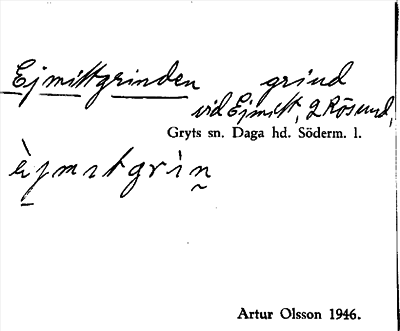 Ejmittgrinden grind
vid Ejmitt, 2 Rösund,
Gryts sn. Daga hd. Söderm. l.
èjmɪtgrìn̰
Artur Olsson 1946.